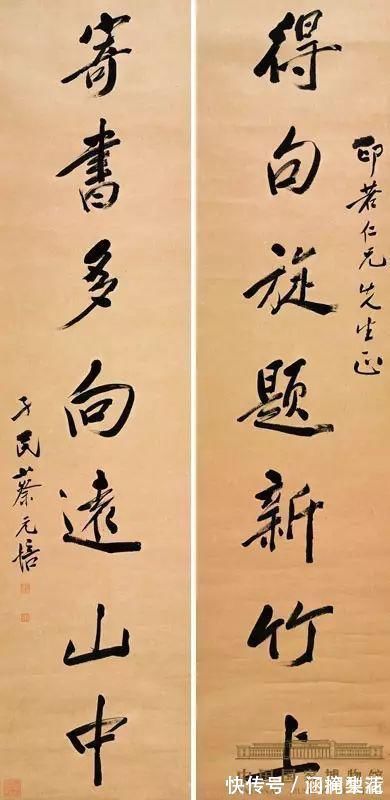 印若仁兄先生正
得句旋題新竹上
寄書多向遠山中
孑民蔡元培
快传号/涵澜生活